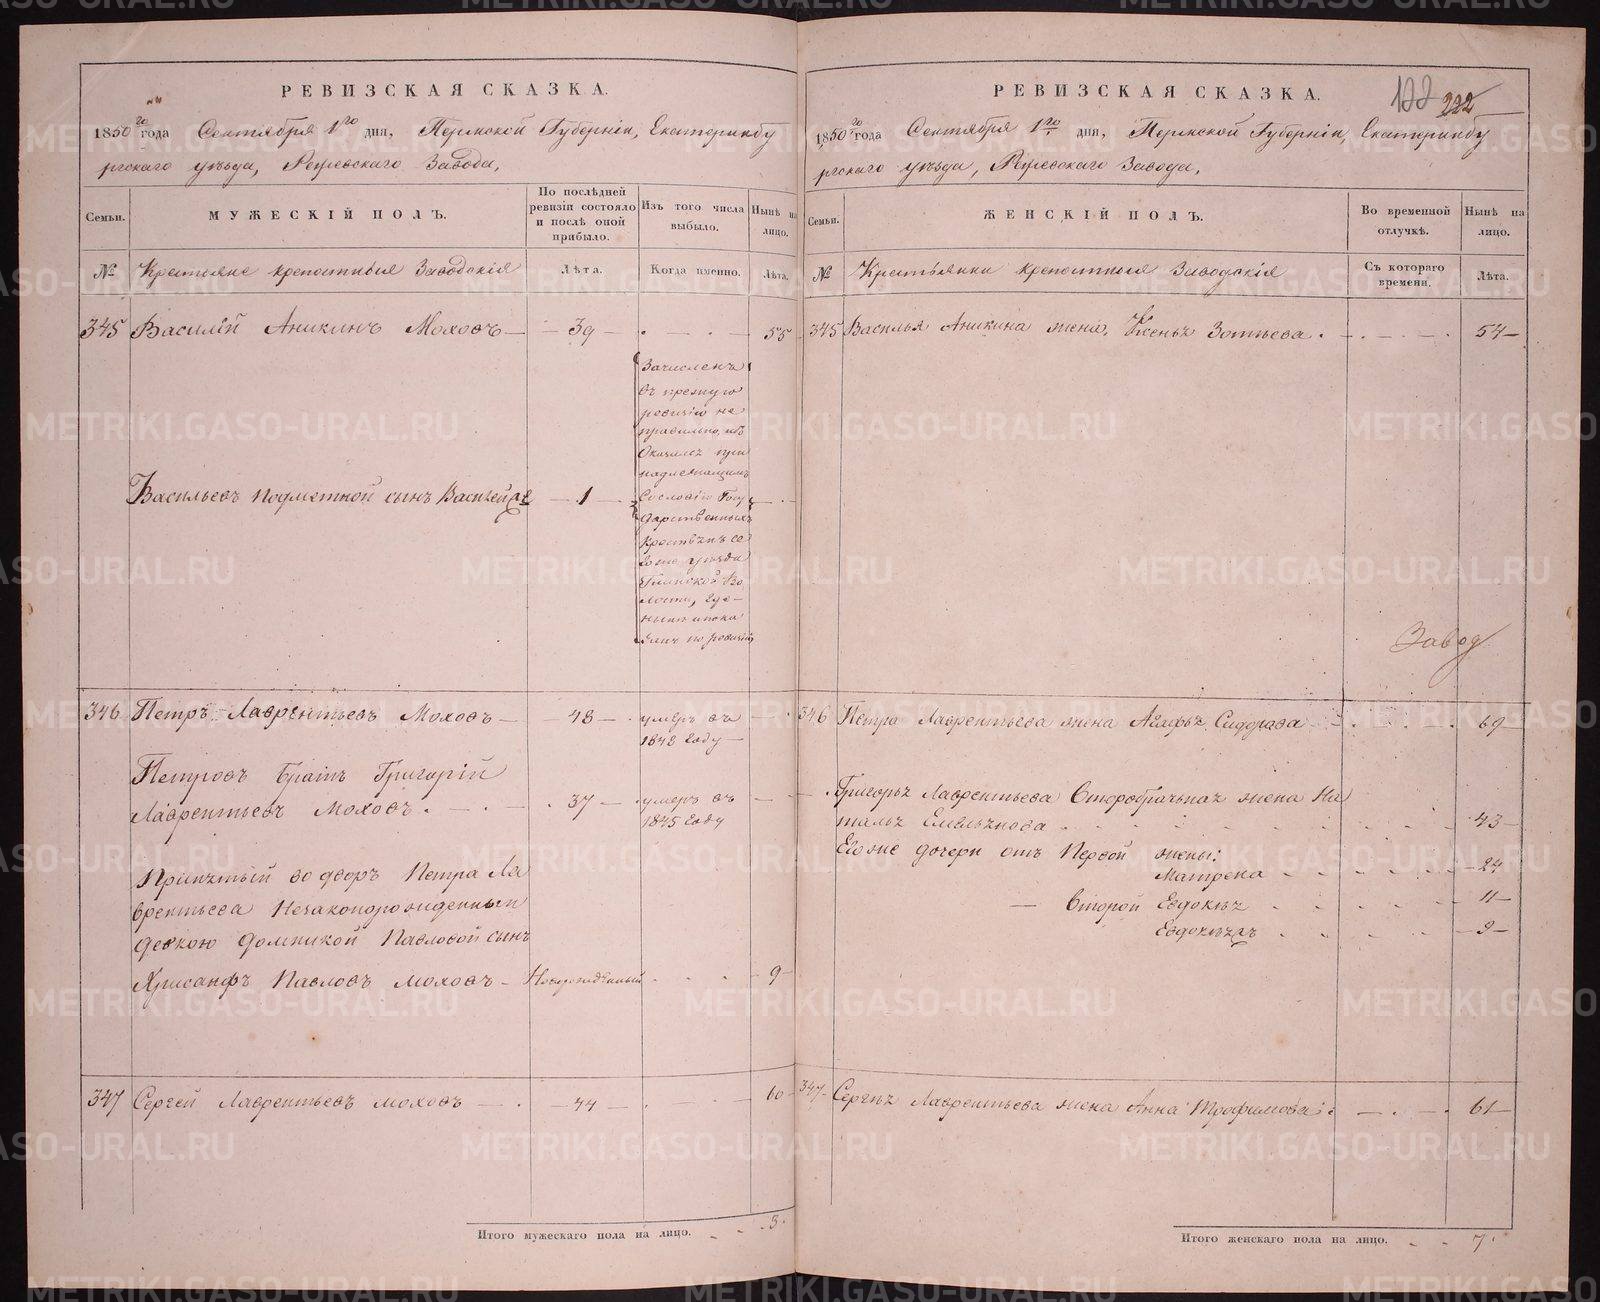 РЕВИЗСКАЯ СКАЗКА.
1850го года Сентября 1го дня, Пермской Губерніи, Екатеринбу
ргскаго уѣзда, Режевскаго Завода,
Семьи.
МУЖЕСКІЙ ПОЛЪ.
По послѣдней ревизіи состояло и послѣ оной прибыло.
Изъ того числа выбыло.
Нынѣ на лицо.
№
Крестьяне крепостныя Заводскія
Лѣта.
Когда именно.
Лѣта.
345 Василій Аникинъ Моховъ — 39 — 55
Зачисленъ
въ прежнюю
ревизію не
правильно, ибо
Оказался при
надлежащимъ
Васильевъ подметной сынъ Василий — 1 — Сословію Госу
дарственныхъ
Крестьянъ се
го же уѣзда
волости, где
ныне и пока
занъ по ревизіи
346 Петръ Лаврентьевъ Моховъ — 48 — умеръ въ
1848 году —
Петровъ братъ Григорій
Лаврентьевъ Моховъ — 37 — умеръ въ
1845 году
Принятый во дворъ Петра Ла
врентьева Незаконорожденный
девкою Домникой Павловой сынъ
Хрисанфъ Павловъ Моховъ — Новорожденный 9
347 Сергей Лаврентьевъ Моховъ — 44 — 60
Итого мужескаго пола на лицо. 3.
РЕВИЗСКАЯ СКАЗКА.
122 222
1850го года Сентября 1го дня, Пермской Губерніи, Екатеринбу
ргскаго уѣзда, Режевскаго Завода,
Семьи.
ЖЕНСКІЙ ПОЛЪ.
Во временной отлучкѣ.
Нынѣ на лицо.
№
Крестьянки крепостныя Заводскія
Съ котораго времени.
Лѣта.
345 Василья Аникина жена, Ксенья Зотьева — 54 —
Завод
346 Петра Лаврентьева жена Агафья Сидорова — 69
Григорья Лаврентьева Второбрачная жена На
талья Емельянова 43 —
Его же дочери отъ Первой жены:
Матрена — 24
— Второй Евдокія 11 —
Евдокія 2я — 9 —
347 Сергея Лаврентьева жена Анна Трофимова — 61 —
Итого женскаго пола на лицо. 7.
METRIKI.GASO-URAL.RU